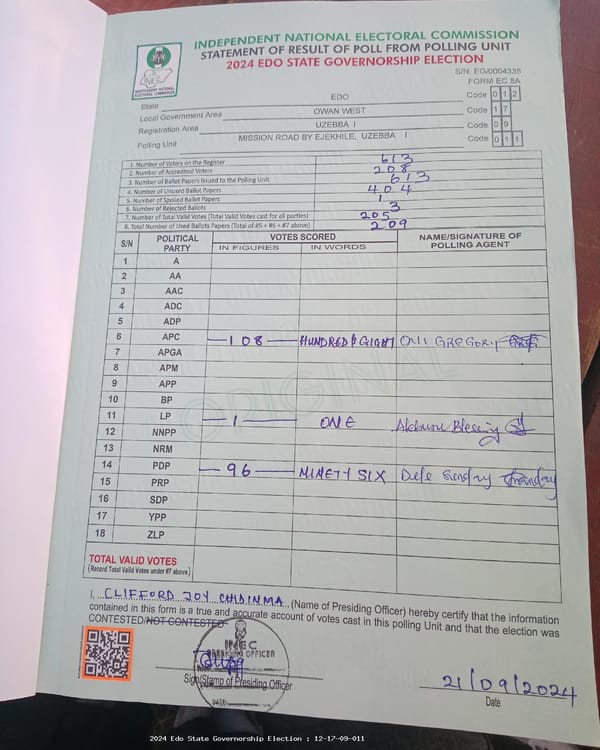 INDEPENDENT NATIONAL ELECTORAL COMMISSION
STATEMENT OF RESULT OF POLL FROM POLLING UNIT
2024 EDO STATE GOVERNORSHIP ELECTION
INEC
INDEPENDENT NATIONAL ELECTORAL COMMISSION
S/N: EG/0004335
FORM EC 8A
State EDO Code 0 1 2
Local Government Area OWAN WEST Code 1 7
Registration Area UZEBBA I Code 0 9
Polling Unit MISSION ROAD BY EJEKHILE, UZEBBA I Code 0 1 1
1. Number of Voters on the Register 613
2. Number of Accredited Voters 208
3. Number of Ballot Papers Issued to the Polling Unit 613
4. Number of Unused Ballot Papers 404
5. Number of Spoiled Ballot Papers 1
6. Number of Rejected Ballots 3
7. Number of Total Valid Votes (Total Valid Votes cast for all parties) 205
8. Total Number of Used Ballots Papers (Total of #5 + #6 + #7 above) 209
S/N POLITICAL PARTY VOTES SCORED NAME/SIGNATURE OF POLLING AGENT
IN FIGURES IN WORDS
1 A
2 AA
3 AAC
4 ADC
5 ADP
6 APC 108 HUNDRED & EIGHT Oni GREGORY
7 APGA
8 APM
9 APP
10 BP
11 LP 1 ONE Blessing
12 NNPP
13 NRM
14 PDP 96 NINETY SIX Dele Sunday
15 PRP
16 SDP
17 YPP
18 ZLP
ORIGINAL
TOTAL VALID VOTES
(Record Total Valid Votes under #7 above)
I, CLIFFORD JOY CHIDINMA (Name of Presiding Officer) hereby certify that the information
contained in this form is a true and accurate account of votes cast in this polling Unit and that the election was
CONTESTED/NOT CONTESTED
INEC
PRESIDING OFFICER
Sign/Stamp of Presiding Officer
DATE:
21/09/2024
Date
2024 Edo State Governorship Election : 12-17-09-011